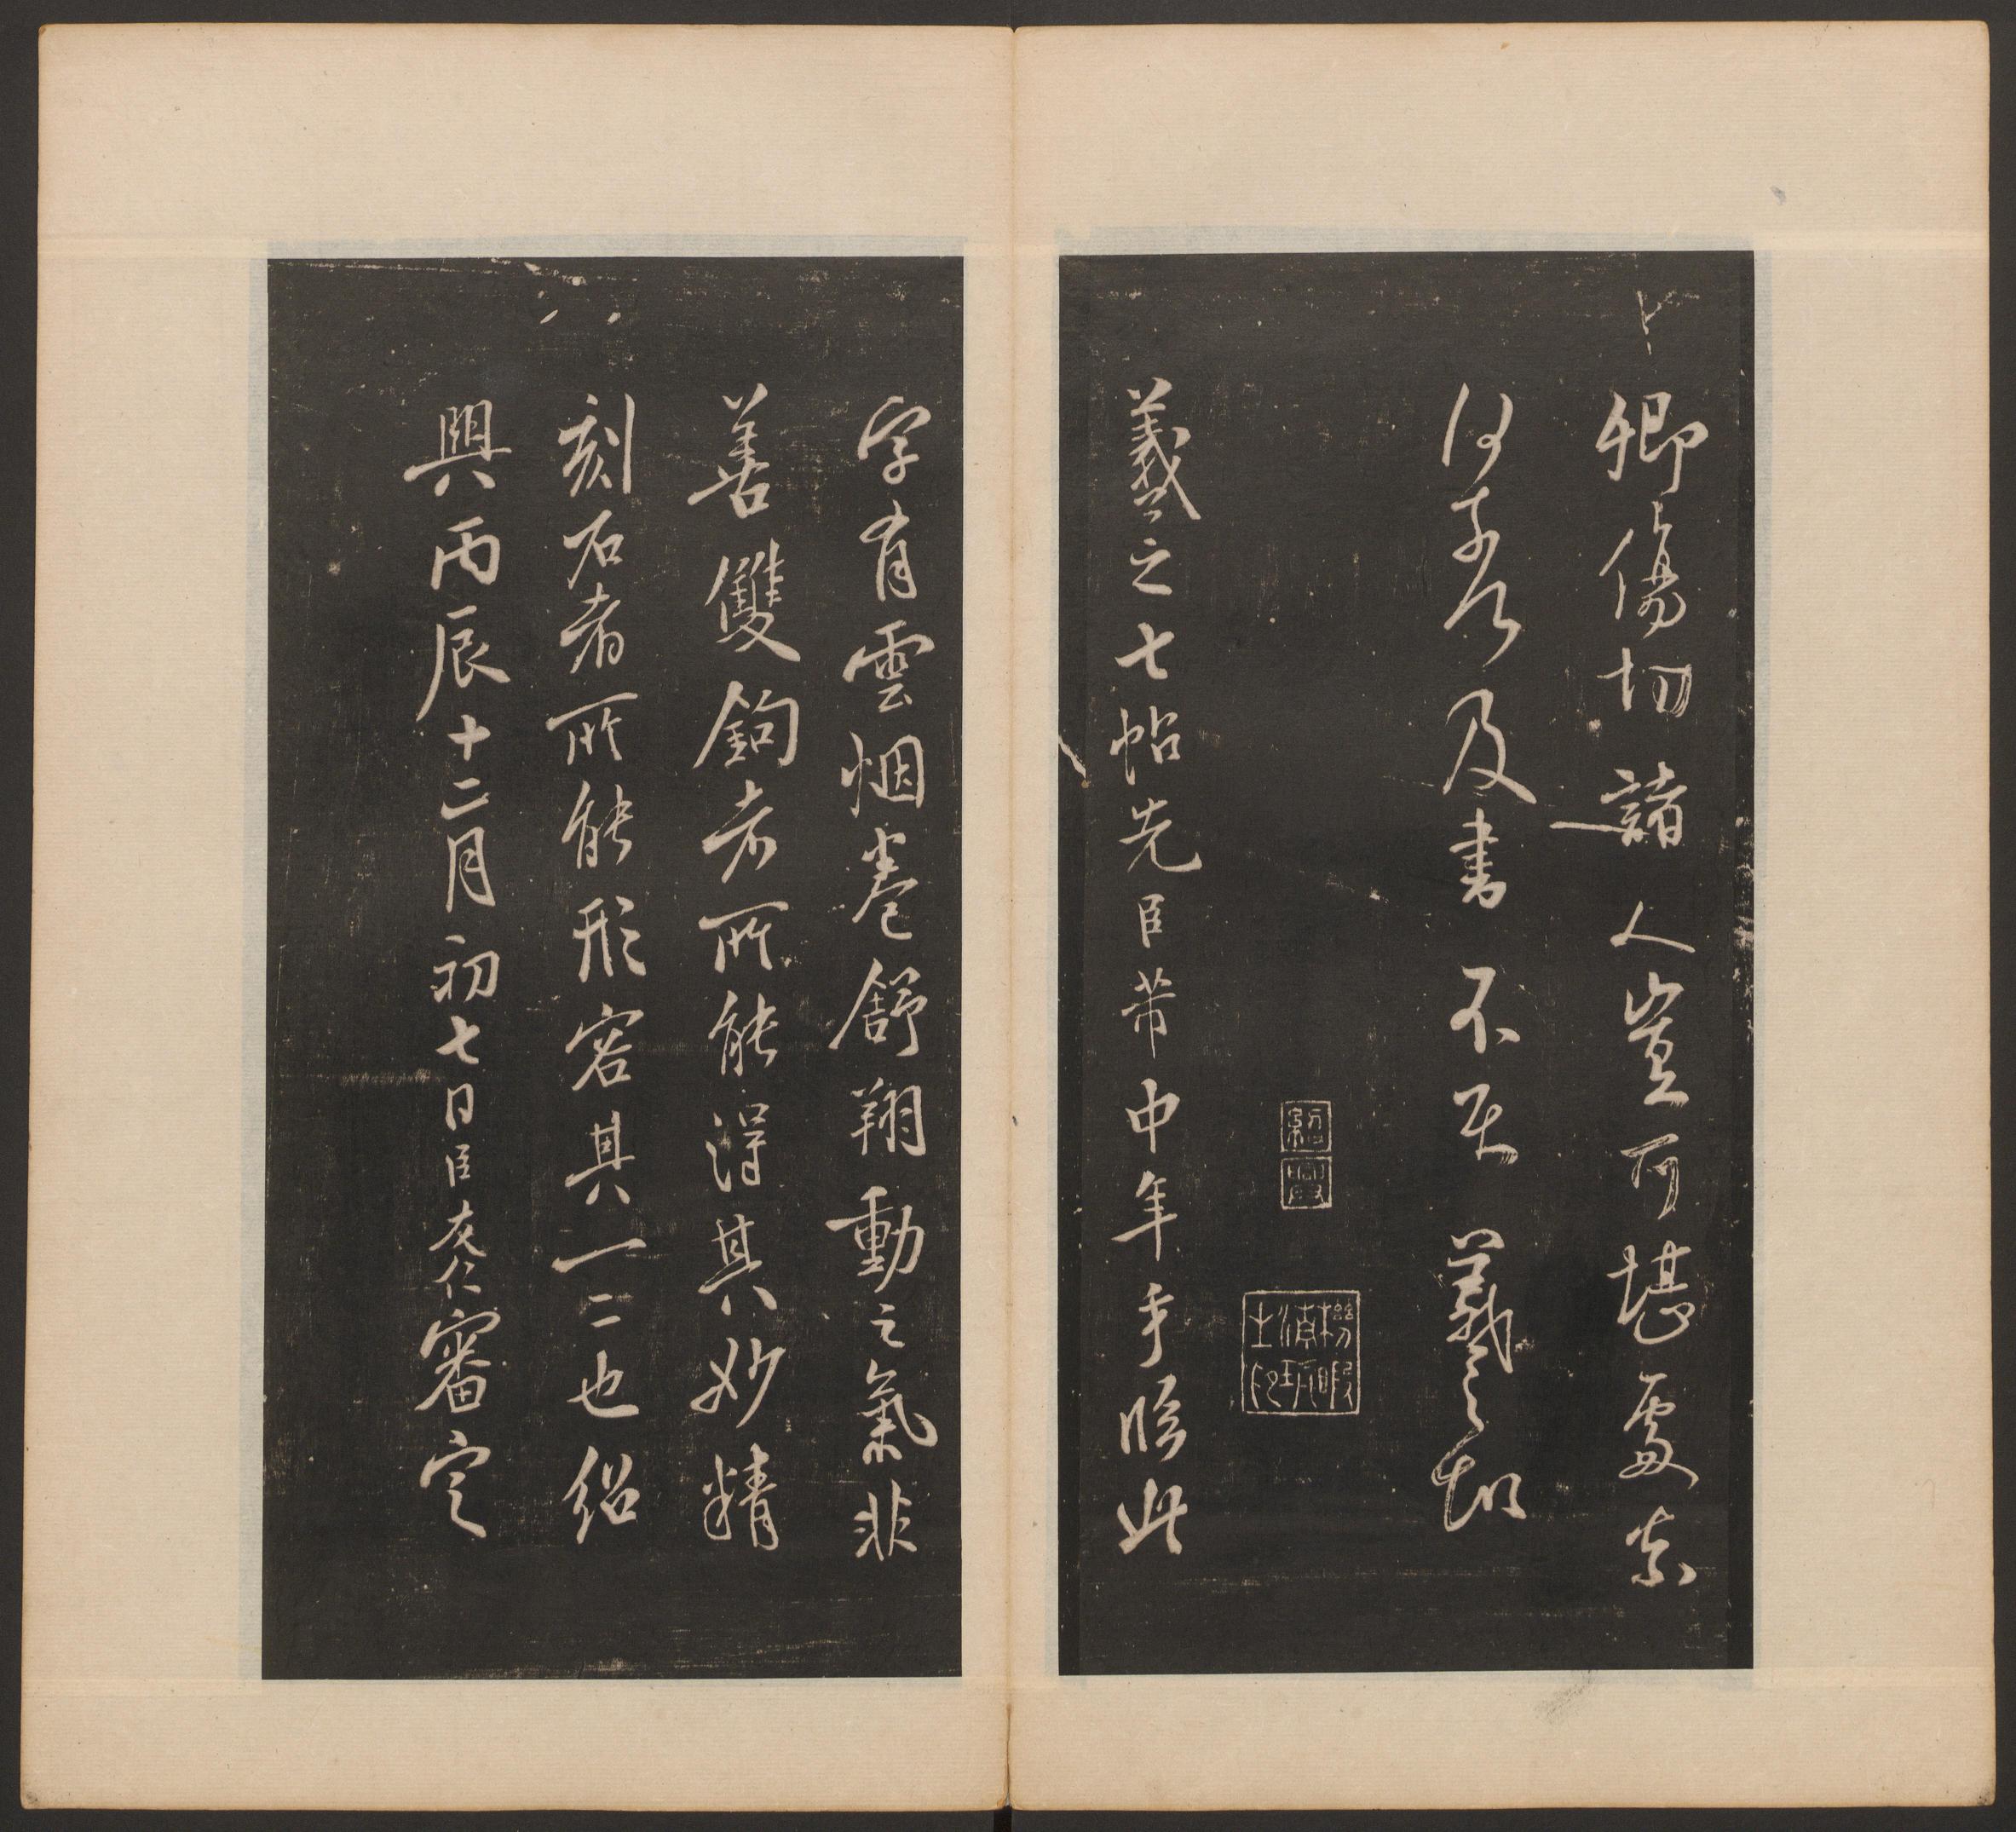 卿傷切諸人豈可堪處奈
何奈何及書不至羲之頓
紹興
機暇清玩之印
羲之七帖先臣芾中年手臨此
字有雲烟卷舒翔動之氣非
善雙鉤者所能得其妙精
刻石者所能形容其一二也紹
興丙辰十二月初七日臣友仁審定